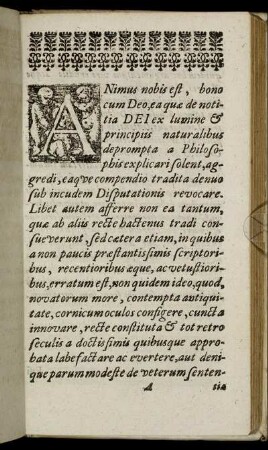 ANimus nobis est, bono
cum Deo, ea quæ de noti-
tia DEI ex lumine &
principiis naturalibus
deprompta a Philoso-
phis explicari solent, ag-
gredi, eaqve compendio tradita denuo
sub incudem Disputationis revocare.
Libet autem afferre non ea tantum,
quæ ab aliis recte hactenus tradi con-
sueverunt, sed cætera etiam, in quibus
a non paucis præstantissimis scriptori-
bus, recentioribus æque, ac vetustiori-
bus, erratum est, non quidem ideo, quod,
novatorum more, contempta antiqui-
tate, cornicum oculos configere, cuncta
innovare, recte constituta & tot retro
seculis a doctissimis quibusque appro-
bata labefactare ac evertere, aut deni-
que parum modeste de veterum senten-
A
tia